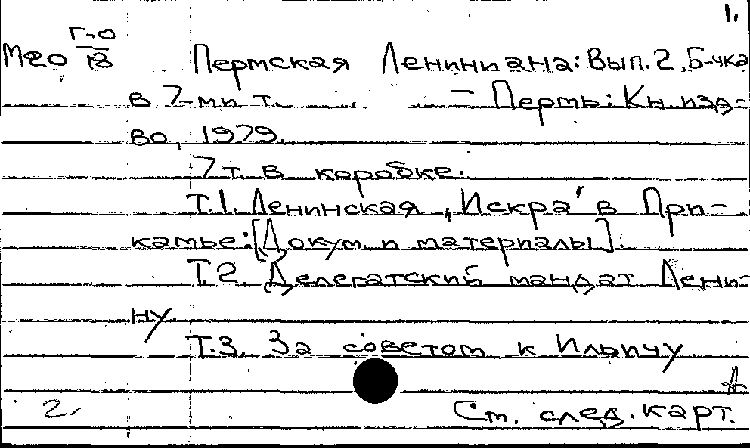 1.
Г-0
М20 18 Пермская Лениниана: Вып. 2, Б-чка
в 7-ми т. – Пермь: Кн. изд-
во, 1979.
7 т. в коробке.
Т.1. Ленинская "Искра" в При-
камье: [Докум. и материалы].
Т.2. Делегатский мандат Лени-
ну
Т.3. За советом к Ильичу
2. См. след. карт.